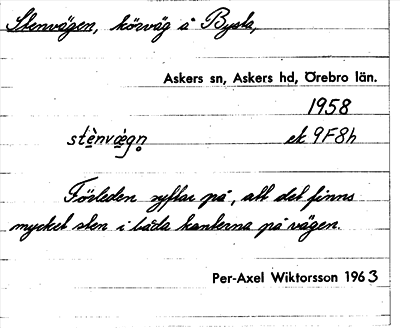 Stenvägen, körväg å Bysta,
Askers sn, Askers hd, Örebro län.
1958
stènvägn̥ ek 9F8h
Förleden syftar på, att det finns
mycket sten i båda kanterna på vägen.
Per-Axel Wiktorsson 1963